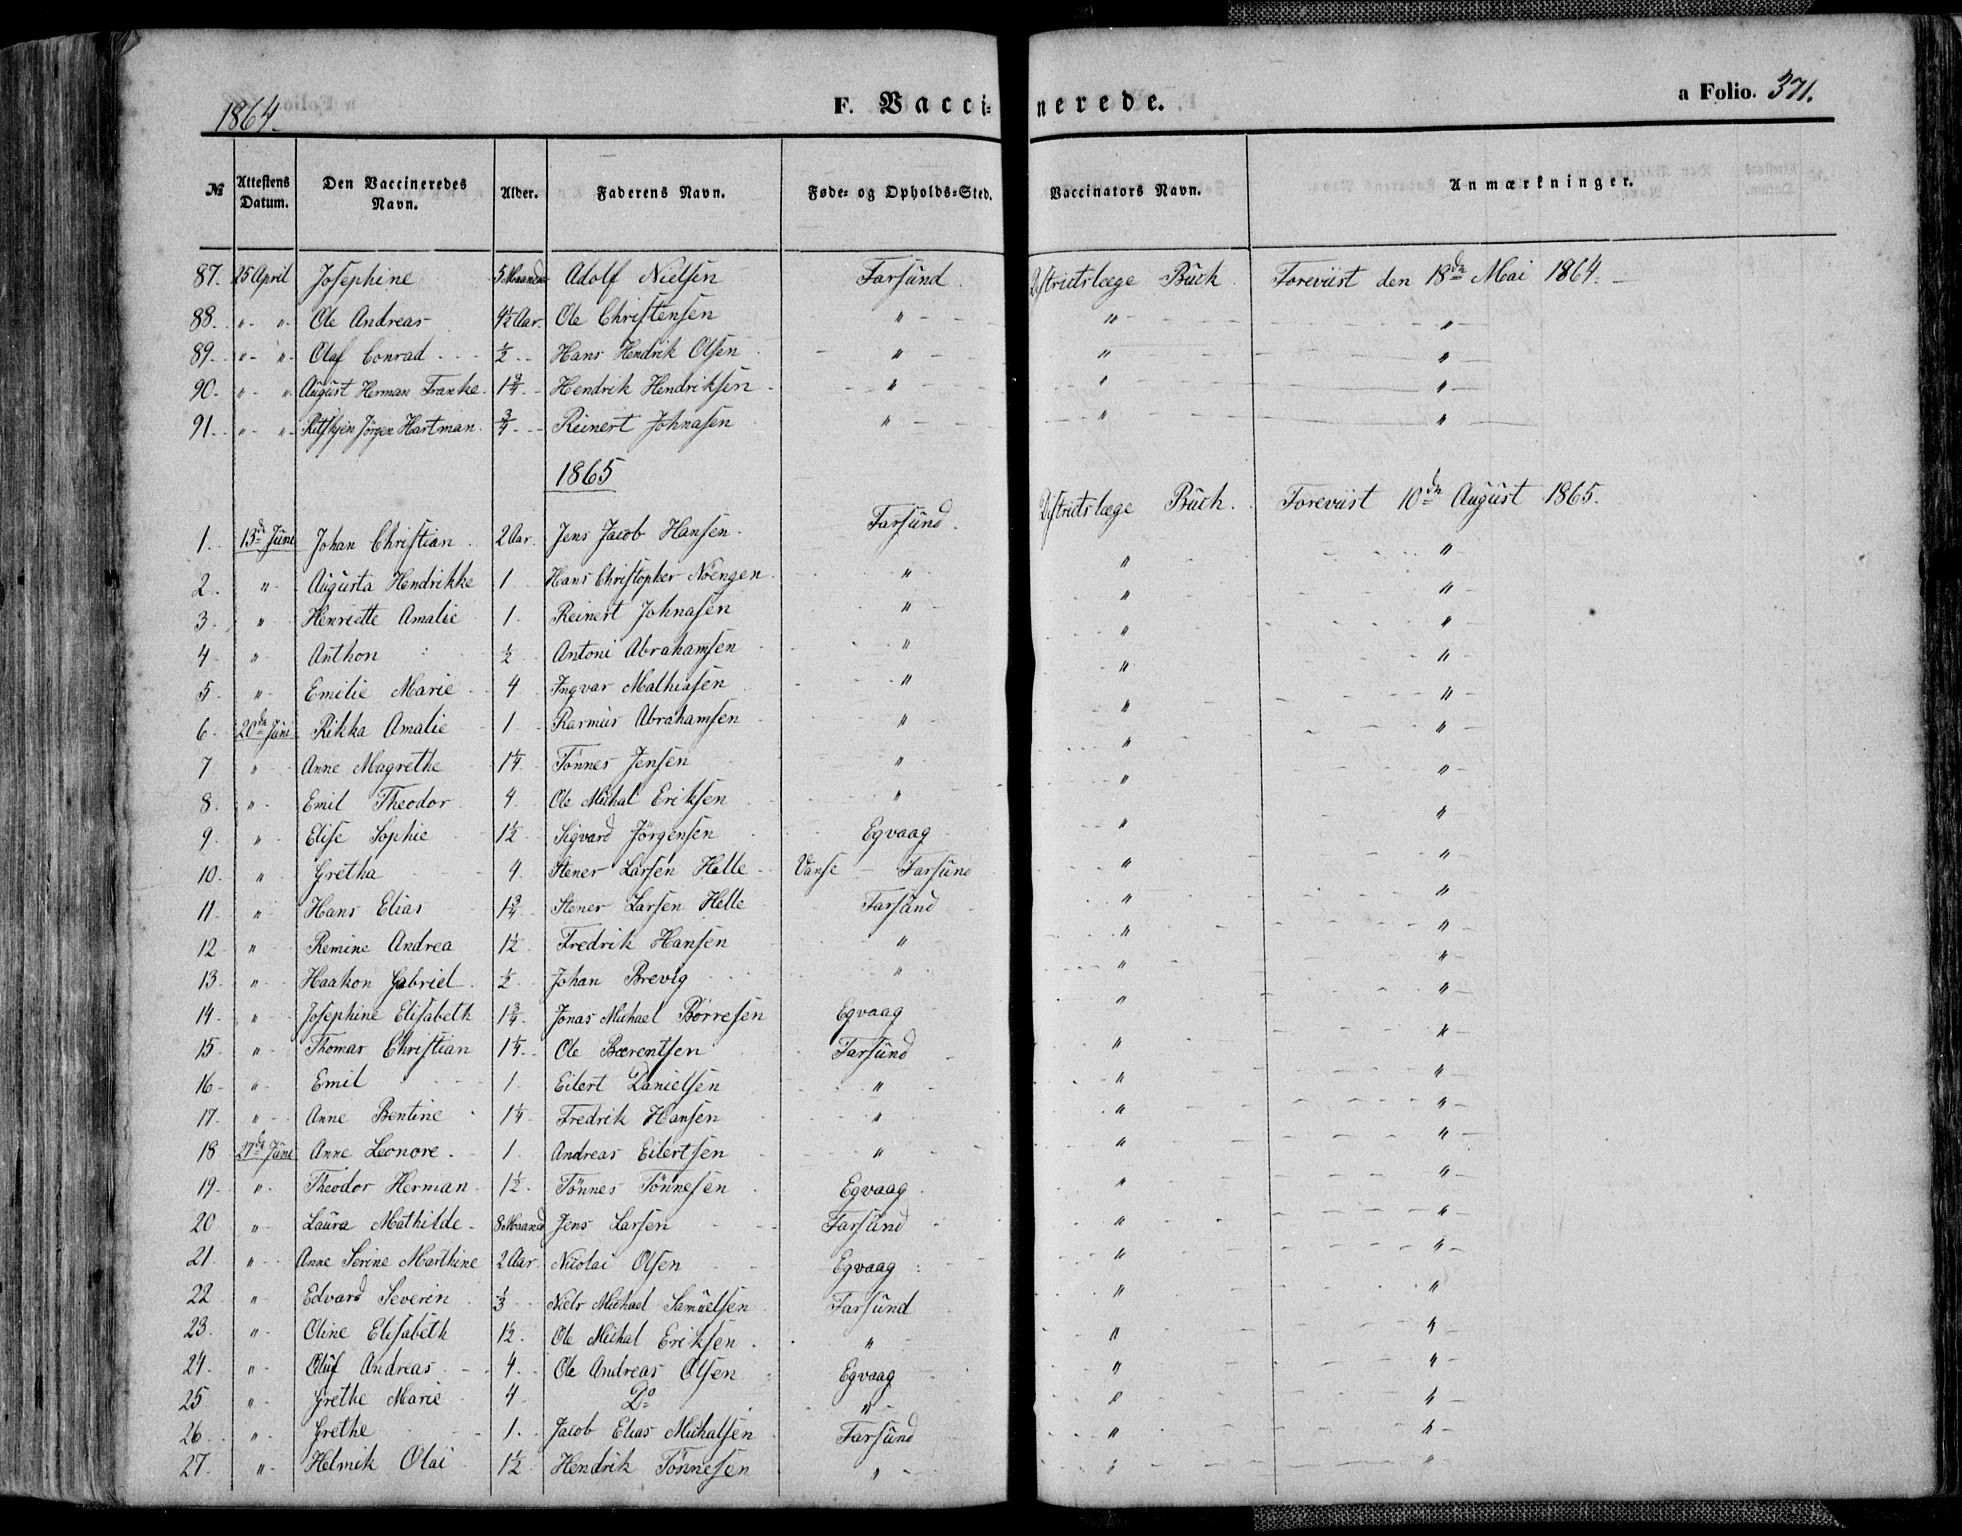 1864. F. Vaccinerede. a Folio. 371.
№ Attestens Datum. Den Vaccineredes Navn. Alder. Faderens Navn. Føde- og Opholds-Sted. Vaccinators Navn. Anmærkninger.
87. 25 April Josephine 5 Maaneder Adolf Nielsen Farsund. Distriktslæge Buch. Foreviist den 18de Mai 1864.
88. " " Ole Andreas 4½ Aar. Ole Christensen " " "
89. " " Olaf Conrad ½ Hans Hendrik Olsen " " "
90. " " August Herman Franke 1¾ Hendrik Hendriksen " " "
91. " " Jörgen Hartman ¾ Reinert Johnasen " " "
1865
1. 13de Juni Johan Christian 2 Aar. Jens Jacob Hansen. Farsund. Distriktslæge Buch. Foreviist 10de August 1865.
2. " Augusta Hendrikke 1 Hans Christopher Nöengen " " "
3. " Henriette Amalie 1. Reinert Johnasen " " "
4 " Anthon ½ Antoni Abrahamsen " " "
5. " Emilie Marie 4 Ingvar Mathiasen " " "
6. 20de Juni Rikka Amalie 1 Rasmus Abrahamsen " " "
7 " Anne Magrethe 1¼ Tönnes Jensen " " "
8. " Emil Theodor 4 Ole Michal Eriksen " " "
9 " Elise Sophie 1½ Sigvard Jörgensen Egvaag " "
10. " Gretha 4. Stener Larsen Helle Vanse – Farsund " "
11 " Hans Elias 1¾ Stener Larsen Helle Farsund " "
12 " Remine Andrea 1½ Fredrik Hansen " " "
13. " Haakon Gabriel ½ Johan Brevig " " "
14. " Josephine Elisabeth 1¾ Jonas Michael Börresen Egvaag " "
15. " Thomas Christian 1¼ Ole Bærentsen Farsund " "
16 " Emil 1. Eilert Danielsen " " "
17. " Anne Bentine 1¼ Fredrik Hansen " " "
18 27de Juni Anne Leonore. 1. Andreas Eilertsen " " "
19. " Theodor Herman 1½ Tönnes Tönnesen Egvaag " "
20 " Laura Mathilde 8 Maaned Jens Larsen Farsund " "
21. " Anne Serine Marthine 2 Aar Nicolai Olsen Egvaag " "
22 " Edvard Severin ⅓ Niels Michael Samuelsen Farsund " "
23. " Oline Elisabeth 1½ Ole Michal Eriksen. " " "
24. " Oluf Andreas 4. Ole Andreas Olsen Egvaag " "
25 " Grethe Marie 4 Do " " "
26 " Grethe 1. Jacob Elias Michalsen Farsund " "
27. " Helmik Olai 1½ Hendrik Tönnesen " " "